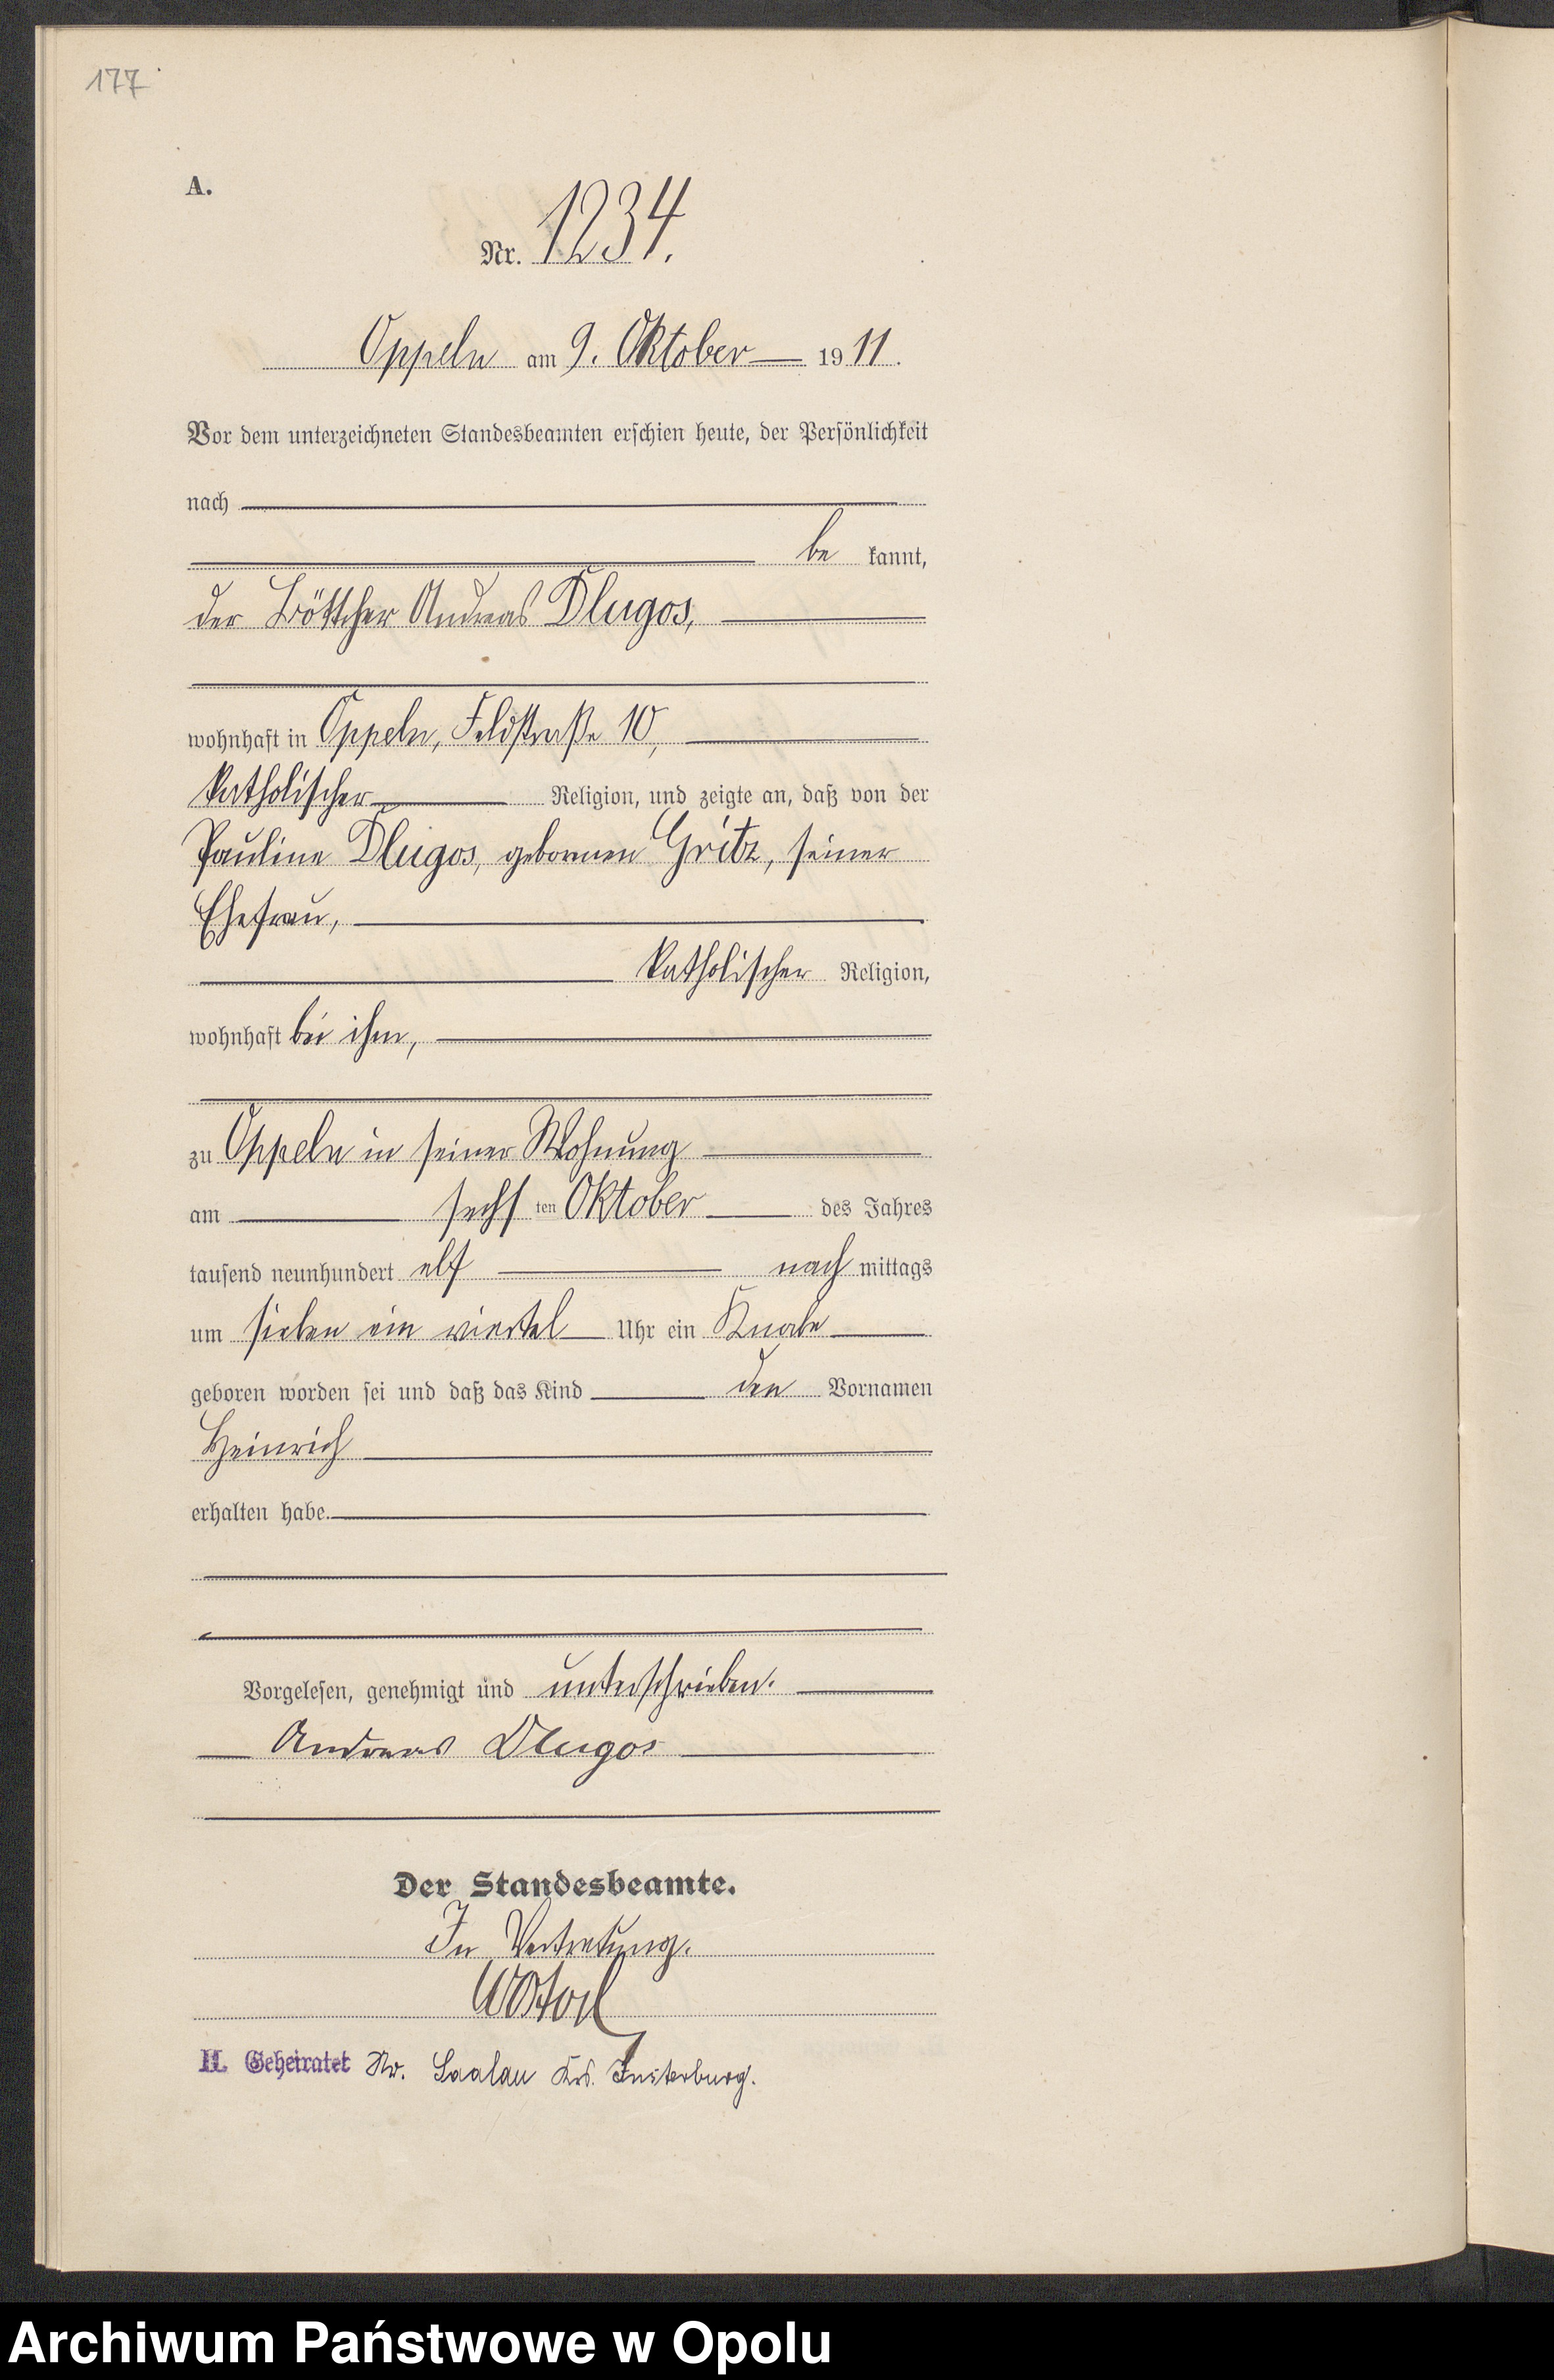 177
A.
Nr. 1234.
Oppeln am 9. Oktober 1911.
Vor dem unterzeichneten Standesbeamten erschien heute, der Persönlichkeit
nach
be kannt,
der Böttcher Andreas Dlugos,
wohnhaft in Oppeln, Feldstraße 10,
katholischer Religion, und zeigte an, daß von der
Pauline Dlugos, geborenen Gritz, seiner
Ehefrau,
katholischer Religion,
wohnhaft bei ihm,
zu Oppeln in seiner Wohnung
am sechs ten Oktober des Jahres
tausend neunhundert elf nach mittags
um sieben ein viertel Uhr ein Knabe
geboren worden sei und daß das Kind den Vornamen
Heinrich
erhalten habe.
Vorgelesen, genehmigt und unterschrieben.
Andreas Dlugos
Der Standesbeamte.
In Vertretung.
II. Geheiratet Nr. Saalau Krs. Insterburg.
Archiwum Państwowe w Opolu